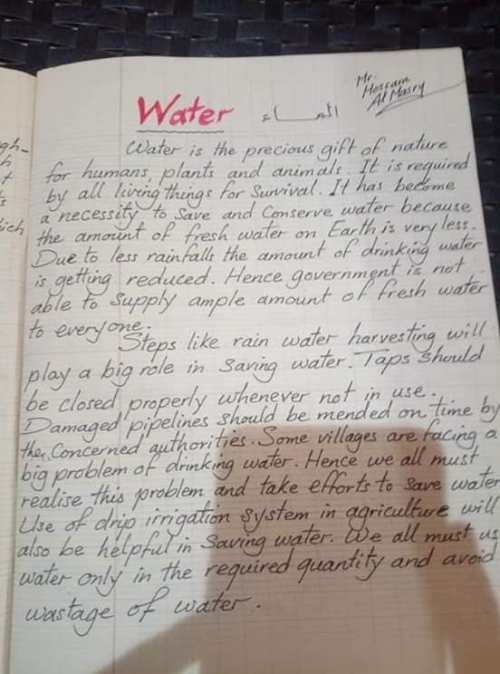 Mr.
Hossam
Al Masry
Water المـــاء
gh-
h
t
s
ich
Water is the precious gift of nature
for humans, plants and animals. It is required
by all living things for Survival. It has become
a necessity to Save and Conserve water because
the amount of fresh water on Earth is very less.
Due to less rainfalls the amount of drinking water
is getting reduced. Hence government is not
able to Supply ample amount of fresh water
to everyone.
Steps like rain water harvesting will
play a big role in Saving water. Taps Should
be closed properly whenever not in use.
Damaged pipelines Should be mended on time by
the Concerned authorities. Some villages are facing a
big problem of drinking water. Hence we all must
realise this problem and take efforts to save water
Use of drip irrigation System in agriculture will
also be helpful in Saving water. We all must us
water only in the required quantity and avoid
wastage of water.